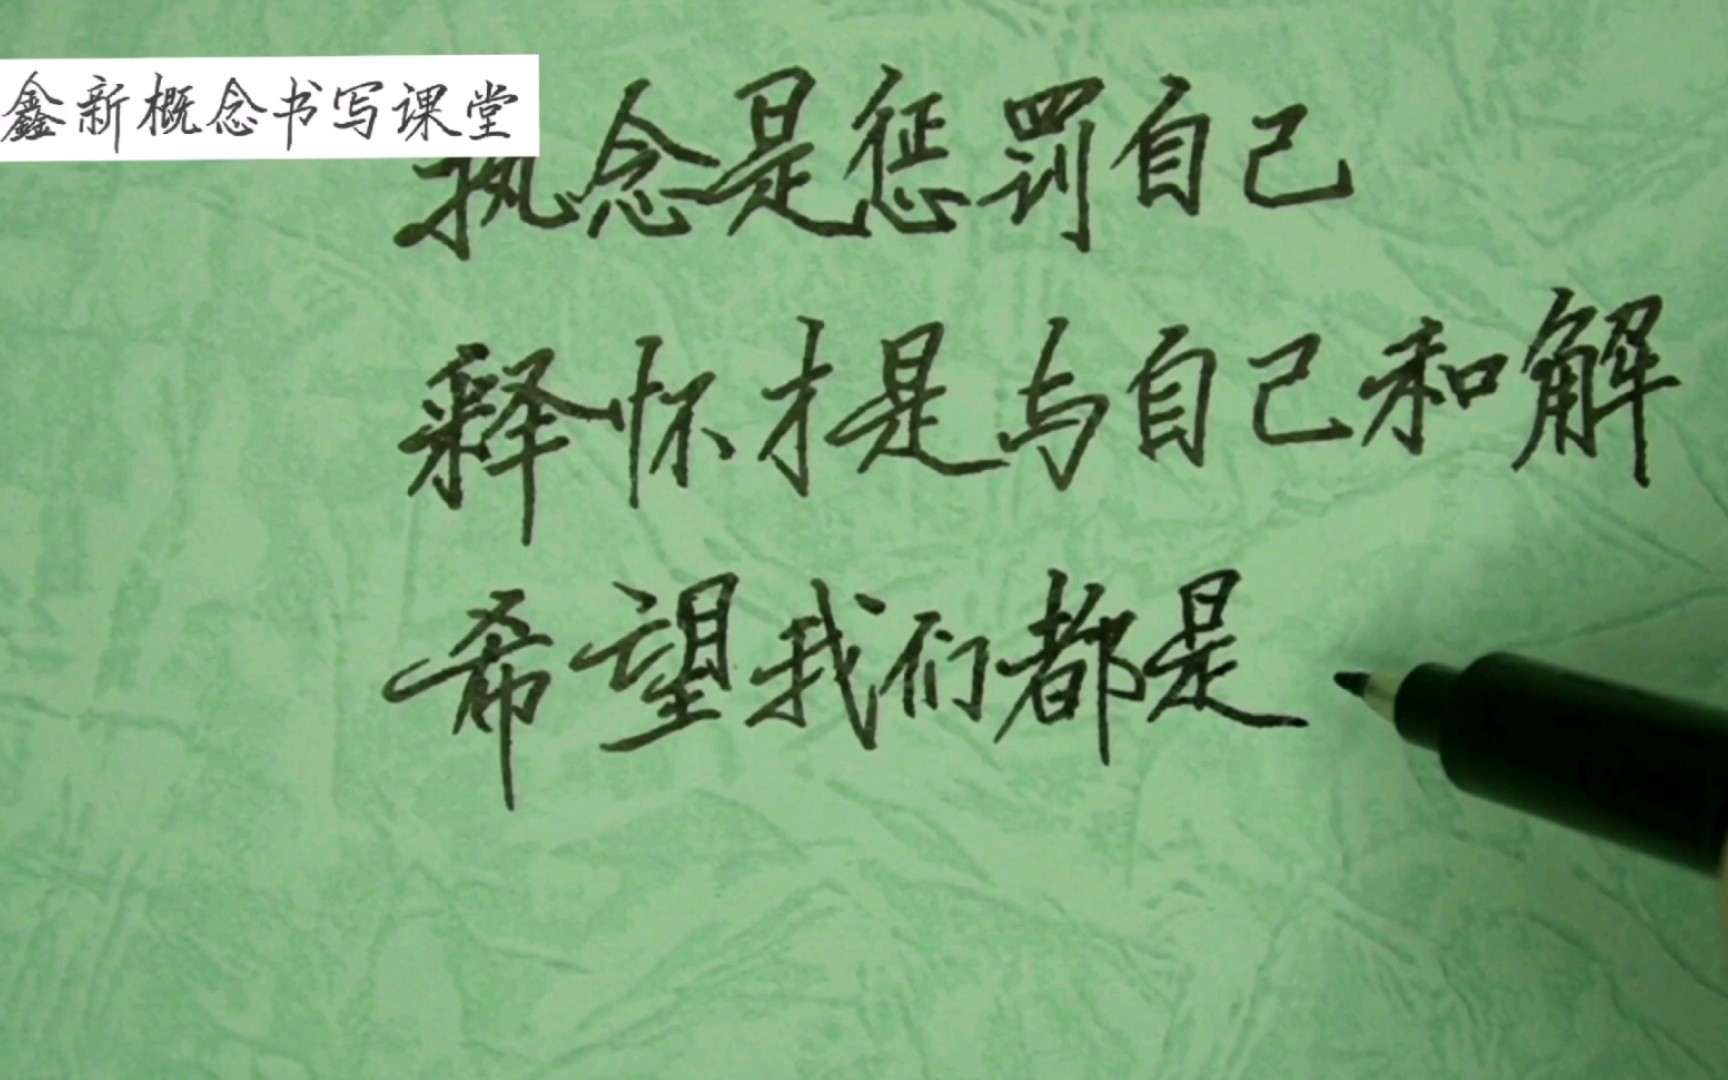 鑫新概念书写课堂
执念是惩罚自己
释怀才是与自己和解
希望我们都是